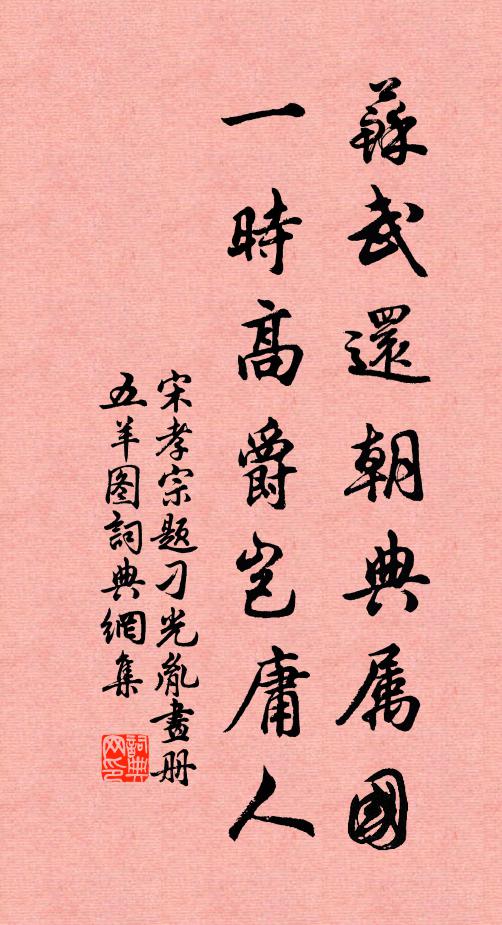 蘇武還朝典属國
一時高爵岂庸人
宋孝宗題刁光胤畫册
五羊图詞典網集
詞典网印